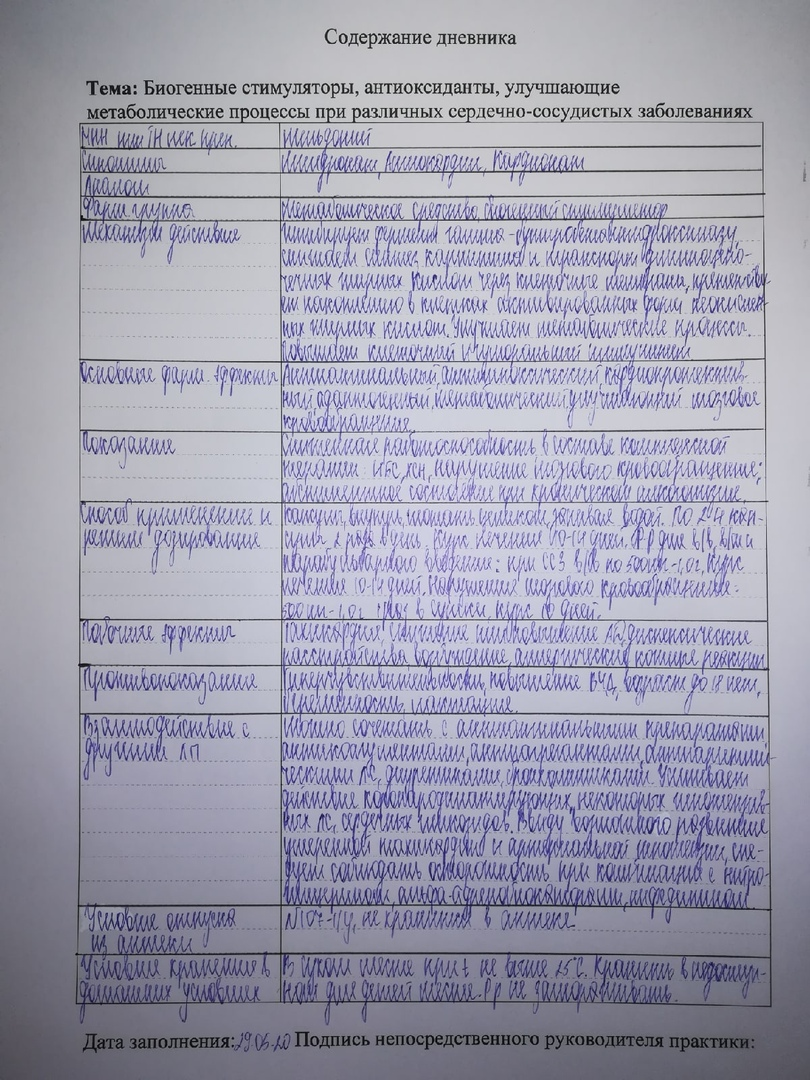 Содержание дневника
Тема: Биогенные стимуляторы, антиоксиданты, улучшающие
метаболические процессы при различных сердечно-сосудистых заболеваниях
МНН или ТН лек. преп. Мельдоний
Синонимы Милдронат, Кардионат
Аналоги
Фарм. группа Метаболическое средство, биогенный стимулятор
Механизм действия Ингибирует фермент гамма-бутиробетаингидроксилазу,
снижает синтез карнитина и транспорт длинноцепо-
чечных жирных кислот через клеточные мембраны, препятству-
ет накоплению в клетках активированных форм неокислен-
ных жирных кислот. Улучшает метаболические процессы.
Повышает клеточный и гуморальный иммунитет
Основные фарм. эффекты Антиангинальный, антигипоксический, кардиопротектив-
ный, метаболический, мозговое
кровообращение
Показания Сниженная работоспособность, в составе комплексной
терапии: ИБС, ХСН, нарушение мозгового кровообращения;
абстинентное состояние при хроническом алкоголизме.
Способ применения и Капсулы внутрь, глотать целиком, запивая водой. По 2-4 кап-
режим дозирования сулы, 2 раза в день. Курс лечения 10-14 дней. Р-р для в/в, в/м и
парабульбарного введения: при ССЗ в/в по 500мг-1,0г, курс
лечения 10-14 дней. Нарушение мозгового кровообращения:
500мг-1,0г 1 раз в сутки, курс 10 дней.
Побочные эффекты Тахикардия, снижение или повышение АД, диспепсические
расстройства, возбуждение, аллергические кожные реакции
Противопоказания Гиперчувствительность, повышение ВЧД, возраст до 18 лет,
беременность, лактация.
Взаимодействие с Можно сочетать с антиангинальными препаратами,
другими ЛП антикоагулянтами, антиагрегантами, антиаритми-
ческими ЛС, диуретиками, бронхолитиками. Усиливает
действие коронародилатирующих, некоторых гипотензив-
ных ЛС, сердечных гликозидов. Ввиду возможного развития
умеренной тахикардии и артериальной гипотензии, сле-
дует соблюдать осторожность при комбинации с нитро-
глицерином, альфа-адреноблокаторами, нифедипином.
Условия отпуска 107-1/у, не хранится в аптеке
из аптеки
Условия хранения в В сухом месте при t не выше 25°С. Хранить в недоступ-
домашних условиях ном для детей месте. Р-р не замораживать.
Дата заполнения: Подпись непосредственного руководителя практики: